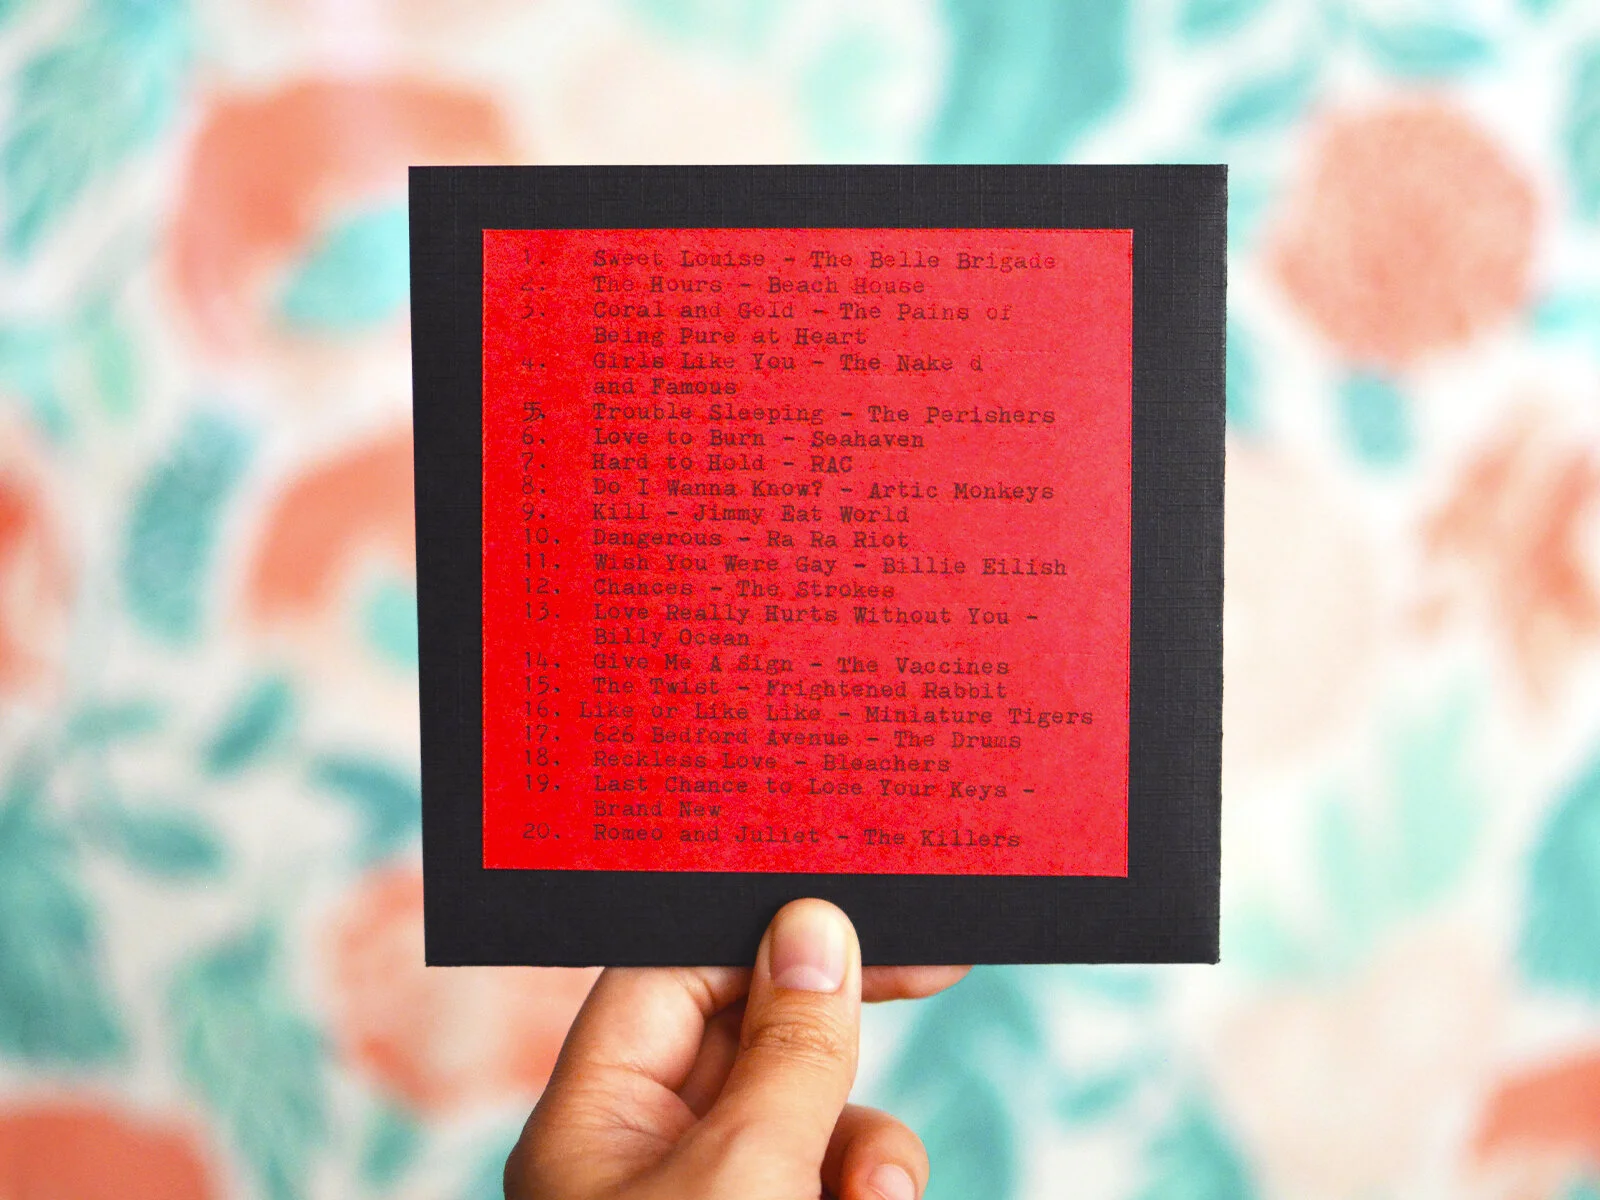 1. Sweet Louise - The Belle Brigade
2. The Hours - Beach House
3. Coral and Gold - The Pains of
Being Pure at Heart
4. Girls Like You - The Nake d
and Famous
5. Trouble Sleeping - The Perishers
6. Love to Burn - Seahaven
7. Hard to Hold - RAC
8. Do I Wanna Know? - Artic Monkeys
9. Kill - Jimmy Eat World
10. Dangerous - Ra Ra Riot
11. Wish You Were Gay - Billie Eilish
12. Chances - The Strokes
13. Love Really Hurts Without You -
Billy Ocean
14. Give Me A Sign - The Vaccines
15. The Twist - Frightened Rabbit
16. Like or Like Like - Miniature Tigers
17. 626 Bedford Avenue - The Drums
18. Reckless Love - Bleachers
19. Last Chance to Lose Your Keys -
Brand New
20. Romeo and Juliet - The Killers